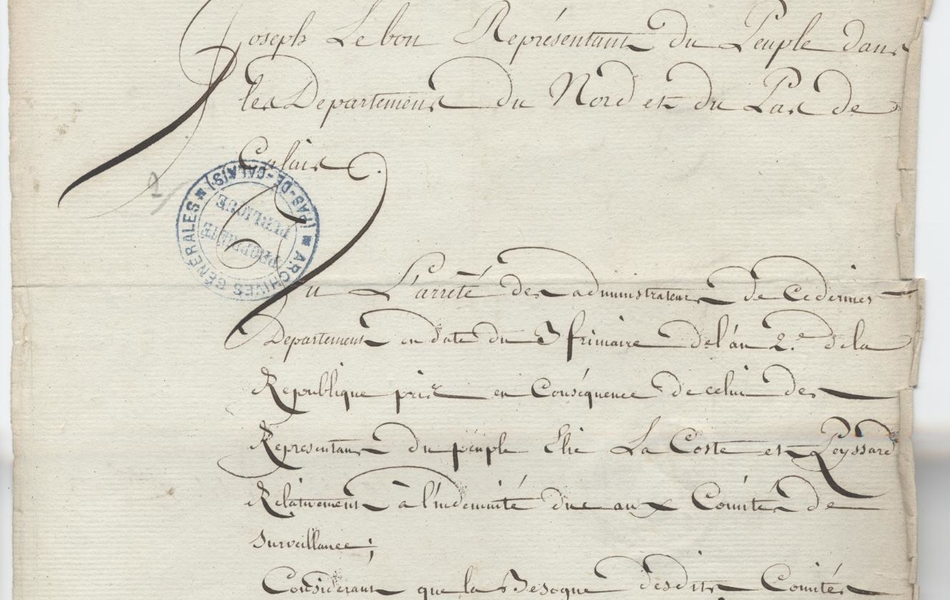 Joseph Lebon Représentant du Peuple dans
les Departemens du Nord et du Pas de
Calais.
ARCHIVES GÉNÉRALES
(PAS-DE-CALAIS)
PROPRIÉTÉ
PUBLIQUE
2
Vu L'arrêté des administrateurs De Cedernier
Departement en date du 3 frimaire del'an 2.e dela
Republique pris en Conséquence de celui des
Representans du peuple Elie La Coste et Peyssard
Relativement à l'indemnité due aux Comités de
Surveillance;
Considérant que la Besogne desdits Comités